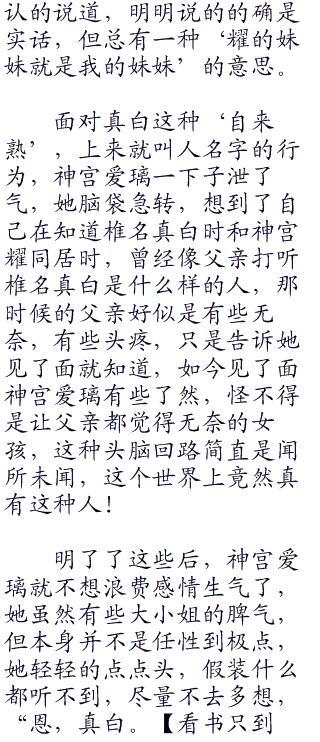 认的说道，明明说的的确是
实话，但总有一种‘耀的妹
妹就是我的妹妹’的意思。
面对真白这种‘自来
熟’，上来就叫人名字的行
为，神宫爱璃一下子泄了
气，她脑袋急转，想到了自
己在知道椎名真白时和神宫
耀同居时，曾经像父亲打听
椎名真白是什么样的人，那
时候的父亲好似是有些无
奈，有些头疼，只是告诉她
见了面就知道，如今见了面
神宫爱璃有些了然，怪不得
是让父亲都觉得无奈的女
孩，这种头脑回路简直是闻
所未闻，这个世界上竟然真
有这种人！
明了了这些后，神宫爱
璃就不想浪费感情生气了，
她虽然有些大小姐的脾气，
但本身并不是任性到极点，
她轻轻的点点头，假装什么
都听不到，尽量不去多想，
“恩，真白。【看书只到